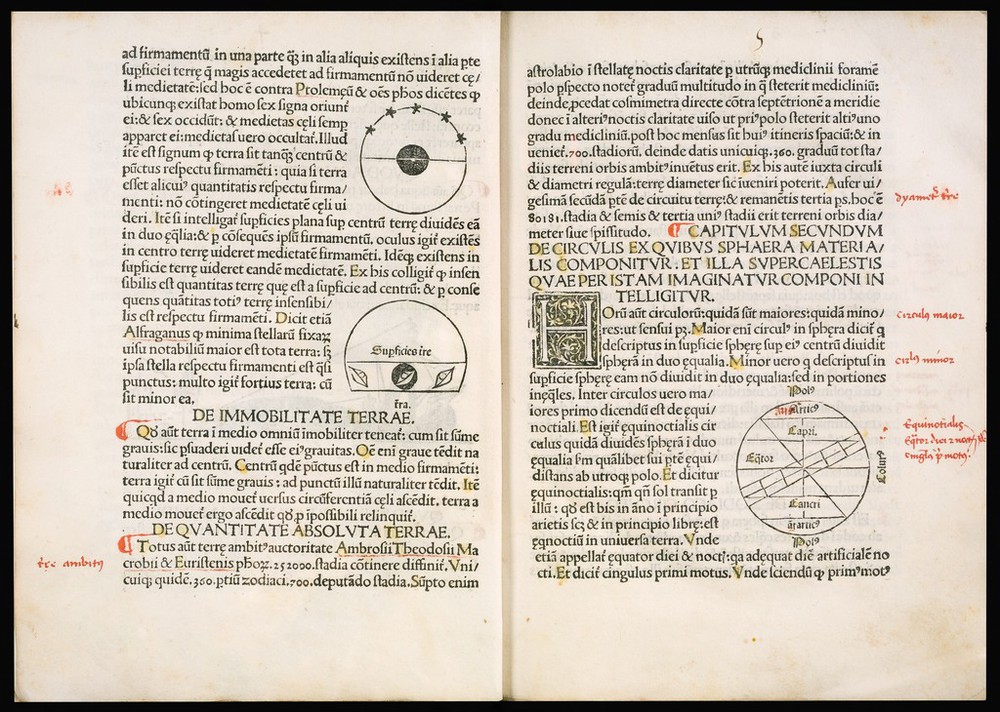 ad firmamentū in una parte q̄ȝ in alia aliquis existens ī alia pte
supficiei terrę q̄ magis accedetet ad firmamentū nō uideret cę/
li medietatē:sed hoc ē contra Ptolemęū & oēs phos dicētes ꝙ
ubicunqꝫ existat homo sex signa oriunt̄
ei:& sex occidūt: & medietas cęli semp
apparet ei:medietas uero occultat̄.Illud
itē est signum ꝙ terra sit tanq̄ȝ centrū &
pūctus respectu firmamēti : quia si terra
esset alicui⁹ quantitatis respectu firma/
menti: nō cōtingeret medietatē cęli ui
deri. Itē si intelligat̄ supficies plana sup centrū terrę diuidēs eā
in duo ęq̄lia:& p cōseqūes ipsū firmamentū. oculus igit̄ existēs
in centro terrę uideret medietatē firmamēti. Idēqꝫ existens in
supficie terrę uideret eandē medietatē. Ex his colligit̄ ꝙ insen
sibilis est quantitas terrę quę est a supficie ad centrū: & p conse
quens quātitas toti⁹ terrę insensibi/
lis est respectu firmamēti. Dicit etiā
Alfraganus ꝙ minima stellarū fixaꝝ
uisu notabiliū maior est tota terra: sȝ
ipsa stella respectu firmamenti est q̄si
punctus: multo igit̄ fortius terra: cū
sit minor ea.
Supficies t̄re
t̄ra.
DE IMMOBILITATE TERRAE.
Qd̄ aūt terra ī medio omniū īmobiliter teneat̄: cum sit sūme
grauis:sic psuaderi uidet̄ esse ei⁹grauitas.Oē enī graue tēdit na
turaliter ad centrū. Centrū qdē pūctus est in medio firmamēti:
terra igit̄ cū sit sūme grauis : ad punctū illū naturaliter tēdit. Itē
quicqd a medio mouet̄ uersus circūferentiā cęli ascēdit. terra a
medio mouet̄ ergo ascēdit qd̄ p īpossibili relinquit̄.
DE QVANTITATE ABSOLVTA TERRAE.
Totus aūt terrę ambit⁹auctoritate Ambrosii Theodosii Ma
crobii & Euristenis phoꝝ.252000.stadia cōtinere diffinit̄.Vni/
cuiqꝫ quidē.360.ptiū zodiaci.700.deputādo stadia.Sūpto enim
t̄re ambitꝰ
5
astrolabio ī stellatę noctis claritate p utrūqꝫ mediclinii foramē
polo pspecto notet̄ graduū multitudo in q̄ steterit mediclīniū:
deinde,pcedat cosmimetra directe cōtra septētrionē a meridie
donec ī alteri⁹noctis claritate uiso ut pri⁹polo steterit alti⁹uno
gradu mediclinīū.post hoc mensus sit hui⁹ itineris spaciū:& in
ueniet̄.700.stadiorū. deinde datis unicuiqꝫ.360. graduū tot sta/
diis terreni orbis ambit⁹īuētus erit. Ex his autē iuxta circuli
& diametri regulā:terrę diameter sic īueniri poterit. Aufer ui/
gesimā secūdā ptē de circuitu terrę:& remanētis tertia ps.hoc ē
80181.stadia & semis & tertia uni⁹ stadii erit terreni orbis dia/
meter siue spissitudo. CAPITVLVM SECVNDVM
DE CIRCVLIS EX QVIBVS SPHAERA MATERIA/
LIS COMPONITVR .ET ILLA SVPERCAELESTIS
QVAE PER ISTAM IMAGINATVR COMPONI IN
TELLIGITVR.
HOrū aūt circulorū:quidā sūt maiores:quidā mino/
res:ut sensui pȝ.Maior enī circul⁹ in sphęra dicit̄ q
descriptus in supficie sphęrę sup ei⁹ centrū diuidit
sphęrā in duo ęqualia.Minor uero q descriptus in
supficie sphęrę eam nō diuidit in duo ęqualia:sed in portiones
inęq̄les. Inter circulos uero ma/
iores primo dicendū est de ęqui/
noctiali.Est igit̄ ęquinoctialis cir
culus quidā diuidēs sphęrā ī duo
ęqualia fm quālibet sui ptē ęqui/
distans ab utroqꝫ polo.Et dicitur
ęquinoctialis:qm̄ qn̄ sol transit p
illū : qd̄ est bis in āno ī principio
arietis scȝ & in principio librę:est
ęqnoctiū in uniuersa terra. Vnde
etiā appellat̄ equator diei & nocti⁹:qa adequat diē artificialē no
cti.Et dicit̄ cingulus primi motus. Vnde sciendū ꝙ prim⁹mot⁹
Pol⁹
Artic⁹
Capri.
Eq̄tor
Cancri
ātartic⁹
Pol⁹
Colur⁹
dyamet̄ t̄re
circulꝰ maior
circlꝰ minor
Equinoctialis